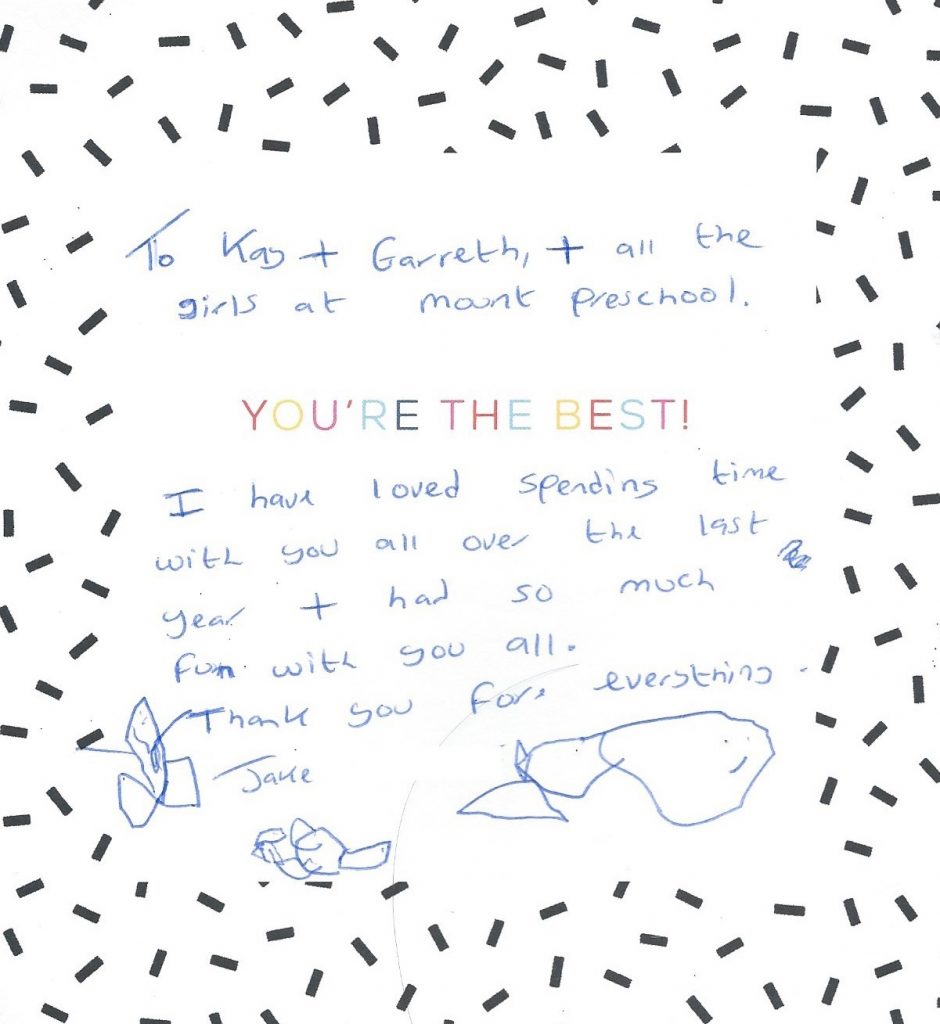 To Kay + Garreth, + all the
girls at mount preschool.
YOU'RE THE BEST!
I have loved spending time
with you all over the last
year + had so much
fun with you all.
Thank you for everything.
Jake